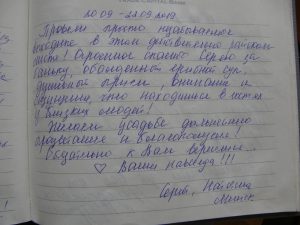 20.09 - 22.09.2019
Провели просто незабываемое
в этом действительно райском
месте! Огромное спасибо Сергею за
баньку, обалденный грибной суп,
душевный прием, внимание и
ощущение, что находишься в гостях
у близких людей!
Желаем усадьбе дальнейшего
процветания и благополучия!
Обязательно к Вам вернемся...
♡ Ваши навсегда!!!
Сергей, Наталья